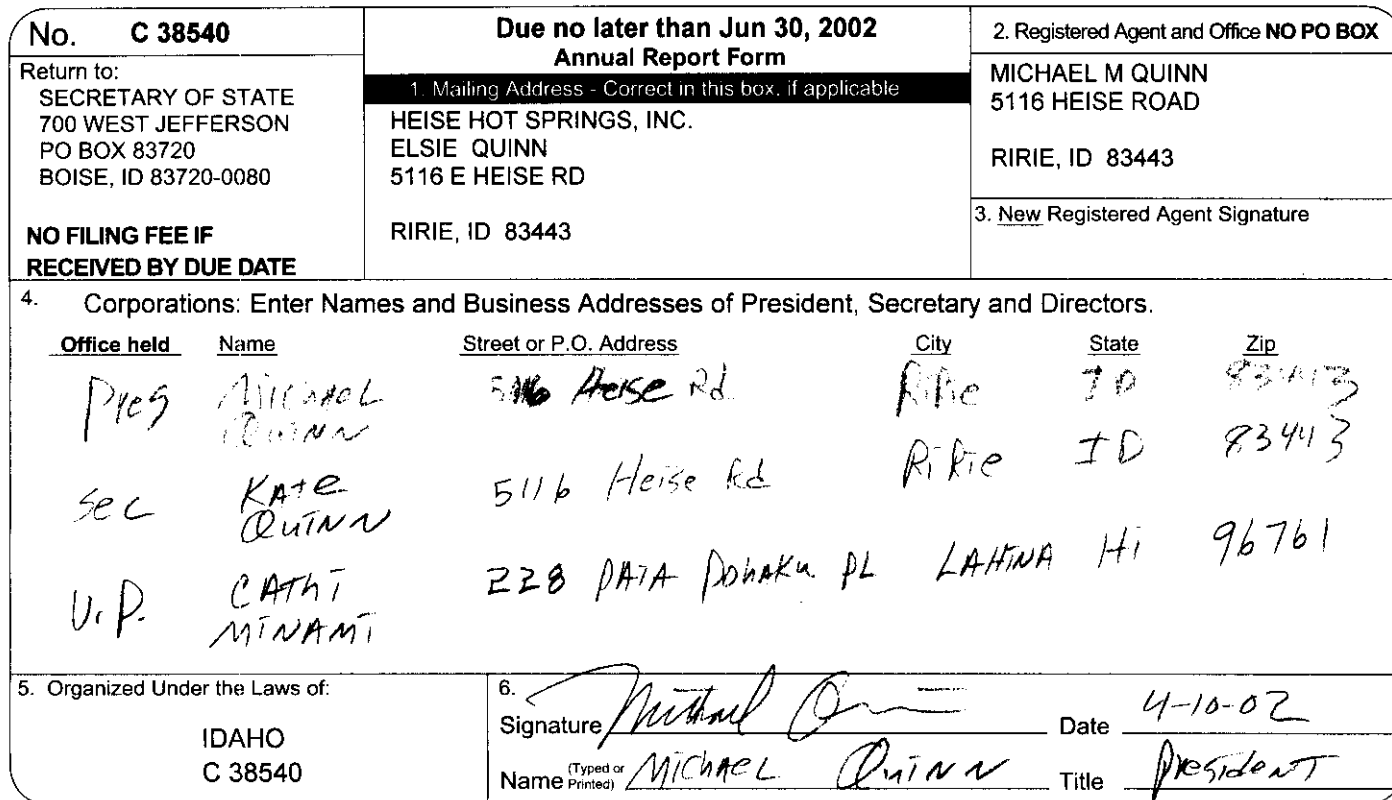 No. C 38540
Return to:
SECRETARY OF STATE
700 WEST JEFFERSON
PO BOX 83720
BOISE, ID 83720-0080
NO FILING FEE IF
RECEIVED BY DUE DATE
Due no later than Jun 30, 2002
Annual Report Form
1. Mailing Address - Correct in this box, if applicable
HEISE HOT SPRINGS, INC.
ELSIE QUINN
5116 E HEISE RD
RIRIE, ID 83443
2. Registered Agent and Office NO PO BOX
MICHAEL M QUINN
5116 HEISE ROAD
RIRIE, ID 83443
3. New Registered Agent Signature
4. Corporations: Enter Names and Business Addresses of President, Secretary and Directors.
Office held Name Street or P.O. Address City State Zip
Pres Michael Quinn 5116 Heise Rd Ririe ID 83443
Sec Kate Quinn 5116 Heise Rd Ririe ID 83443
V.P. Cathi Minami 228 Pohaku PL LAHINA Hi 96761
5. Organized Under the Laws of:
IDAHO
C 38540
6.
Signature Michael Quinn Date 4-10-02
Name (Typed or Printed) Michael Quinn Title President